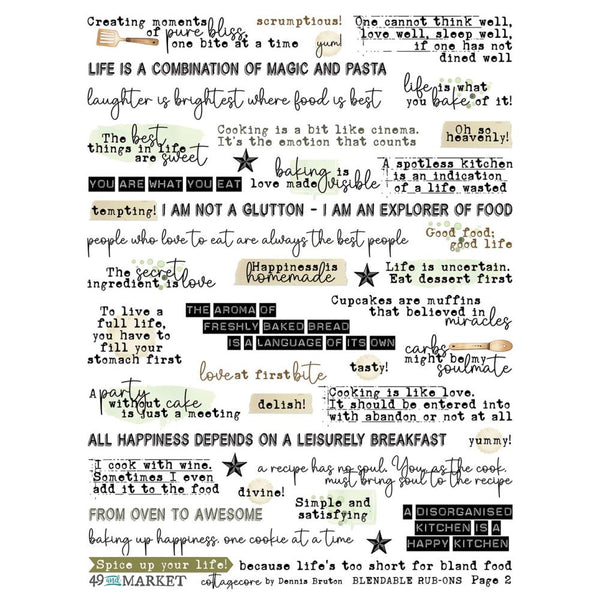 Creating moments
of pure bliss,
one bite at a time
scrumptious!
yum!
One cannot think well,
love well, sleep well,
if one has not
dined well
LIFE IS A COMBINATION OF MAGIC AND PASTA
life is what
you bake of it!
laughter is brightest where food is best
The best
things in life
are sweet
Cooking is a bit like cinema.
It's the emotion that counts
Oh so
heavenly!
YOU ARE WHAT YOU EAT
baking is
love made visible
A spotless kitchen
is an indication
of a life wasted
tempting!
I AM NOT A GLUTTON - I AM AN EXPLORER OF FOOD
people who love to eat are always the best people
Good food;
good life
The secret
ingredient is love
Happiness is
homemade
Life is uncertain.
Eat dessert first
To live a
full life,
you have to
fill your
stomach first
THE AROMA OF
FRESHLY BAKED BREAD
IS A LANGUAGE OF ITS OWN
Cupcakes are muffins
that believed in
miracles
carbs
might be my
soulmate
love at first bite
tasty!
A party
without cake
is just a meeting
delish!
Cooking is like love.
It should be entered into
with abandon or not at all
ALL HAPPINESS DEPENDS ON A LEISURELY BREAKFAST
yummy!
I cook with wine.
Sometimes I even
add it to the food
a recipe has no soul. You as the cook,
must bring soul to the recipe
divine!
Simple and
satisfying
FROM OVEN TO AWESOME
A DISORGANISED
KITCHEN IS A
HAPPY KITCHEN
baking up happiness, one cookie at a time
Spice up your life!
because life's too short for bland food
49 and MARKET
cottagecore by Dennis Bruton
BLENDABLE RUB-ONS
Page 2